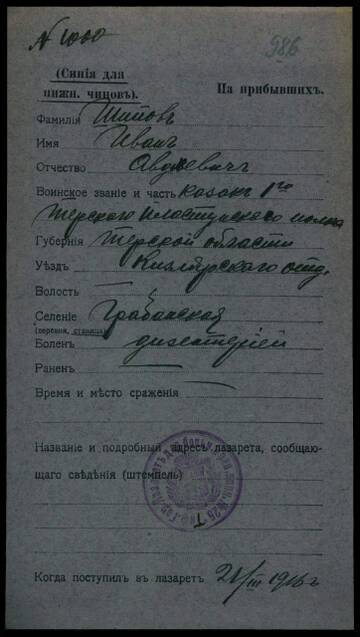 N 1000
986
(Синія для
нижн. чиновъ).
На прибывшихъ.
Фамилія Шиповъ
Имя Иванъ
Отчество Авдѣевичъ
Воинское званіе и часть казакъ 1го
Терского пластунского полка
Губернія Терской области
Уѣздъ Кизлярского отд.
Волость
Селеніе Грабанская
(деревня, станица)
Боленъ дизентеріей
Раненъ
Время и мѣсто сраженія
Названіе и подробный адресъ лазарета, сообщаю-
щаго свѣдѣнія (штемпель)
Когда поступилъ въ лазаретъ 21/III 1916 г